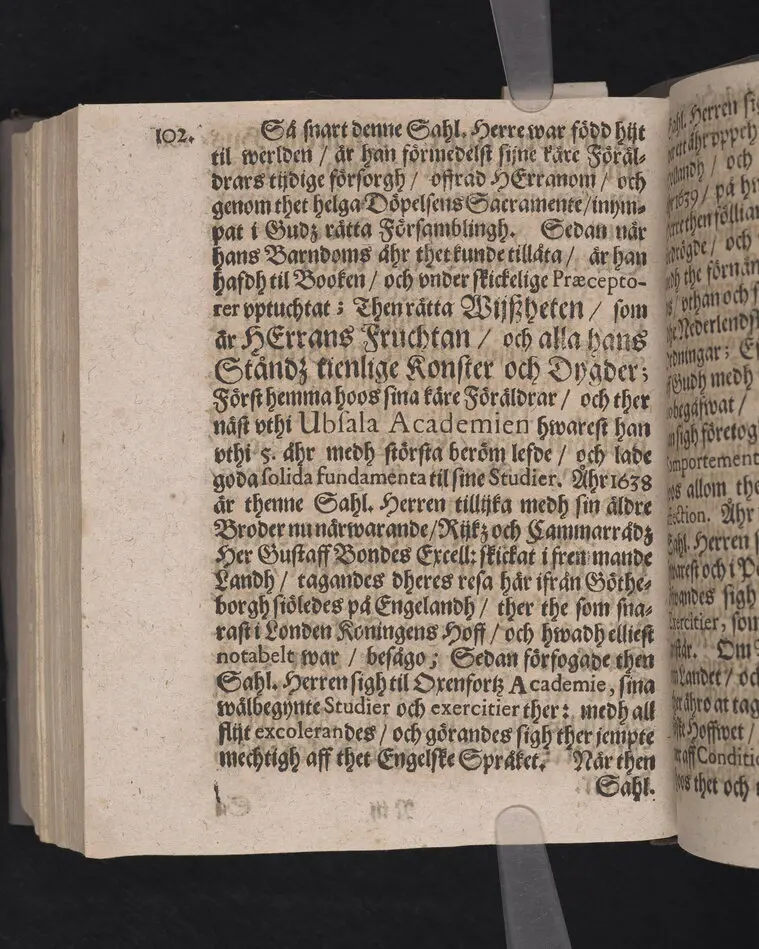 102.
Så snart denne Sahl. Herre war född hijt
til werlden / är han förmedelst sijne käre Föräl-
drars tijdige försorgh / offrad HErranom / och
genom thet helga Döpelsens Sacramente / inym-
pat i Gudz rätta Församblingh. Sedan när
hans Barndoms åhr thet kunde tillåta / är han
hafdh til Booken / och vnder skickelige Præcepto-
rer vptuchtat ; Then rätta Wijßheten / som
är HErrans Fruchtan / och alla hans
Ståndz tienlige Konster och Dygder ;
Först hemma hoos sina käre Föräldrar / och ther
näst vthi Ubsala Academien hwarest han
vthi 5. åhr medh största beröm lefde / och lade
goda solida fundamenta til sine Studier. Åhr 1638
är thenne Sahl. Herren tillijka medh sin äldre
Broder nu närwarande / Rijkz och Cammarrådz
Her Gustaff Bondes Excell: skickat i fremmande
Landh / tagandes dheres resa här ifrån Göthe-
borgh siöledes på Engelandh / ther the som sna-
rast i Londen Koningens Hoff / och hwadh elliest
notabelt war / besågo ; Sedan förfogade then
Sahl. Herren sigh til Oxenfortz Academie, sina
wälbegynte Studier och exercitier ther : medh all
flijt excolerandes / och görandes sigh ther jempte
mechtigh aff thet Engelske Språket. När then
Sahl.
Herren
och
1639 / på
och
Nederlendst
Gudh medh
begåfwat /
sigh företog
allom the
Åhr
Herren
och i
sigh
som
Om
Landet /
at tag
Hoffwet /
aff Conditi
thet och